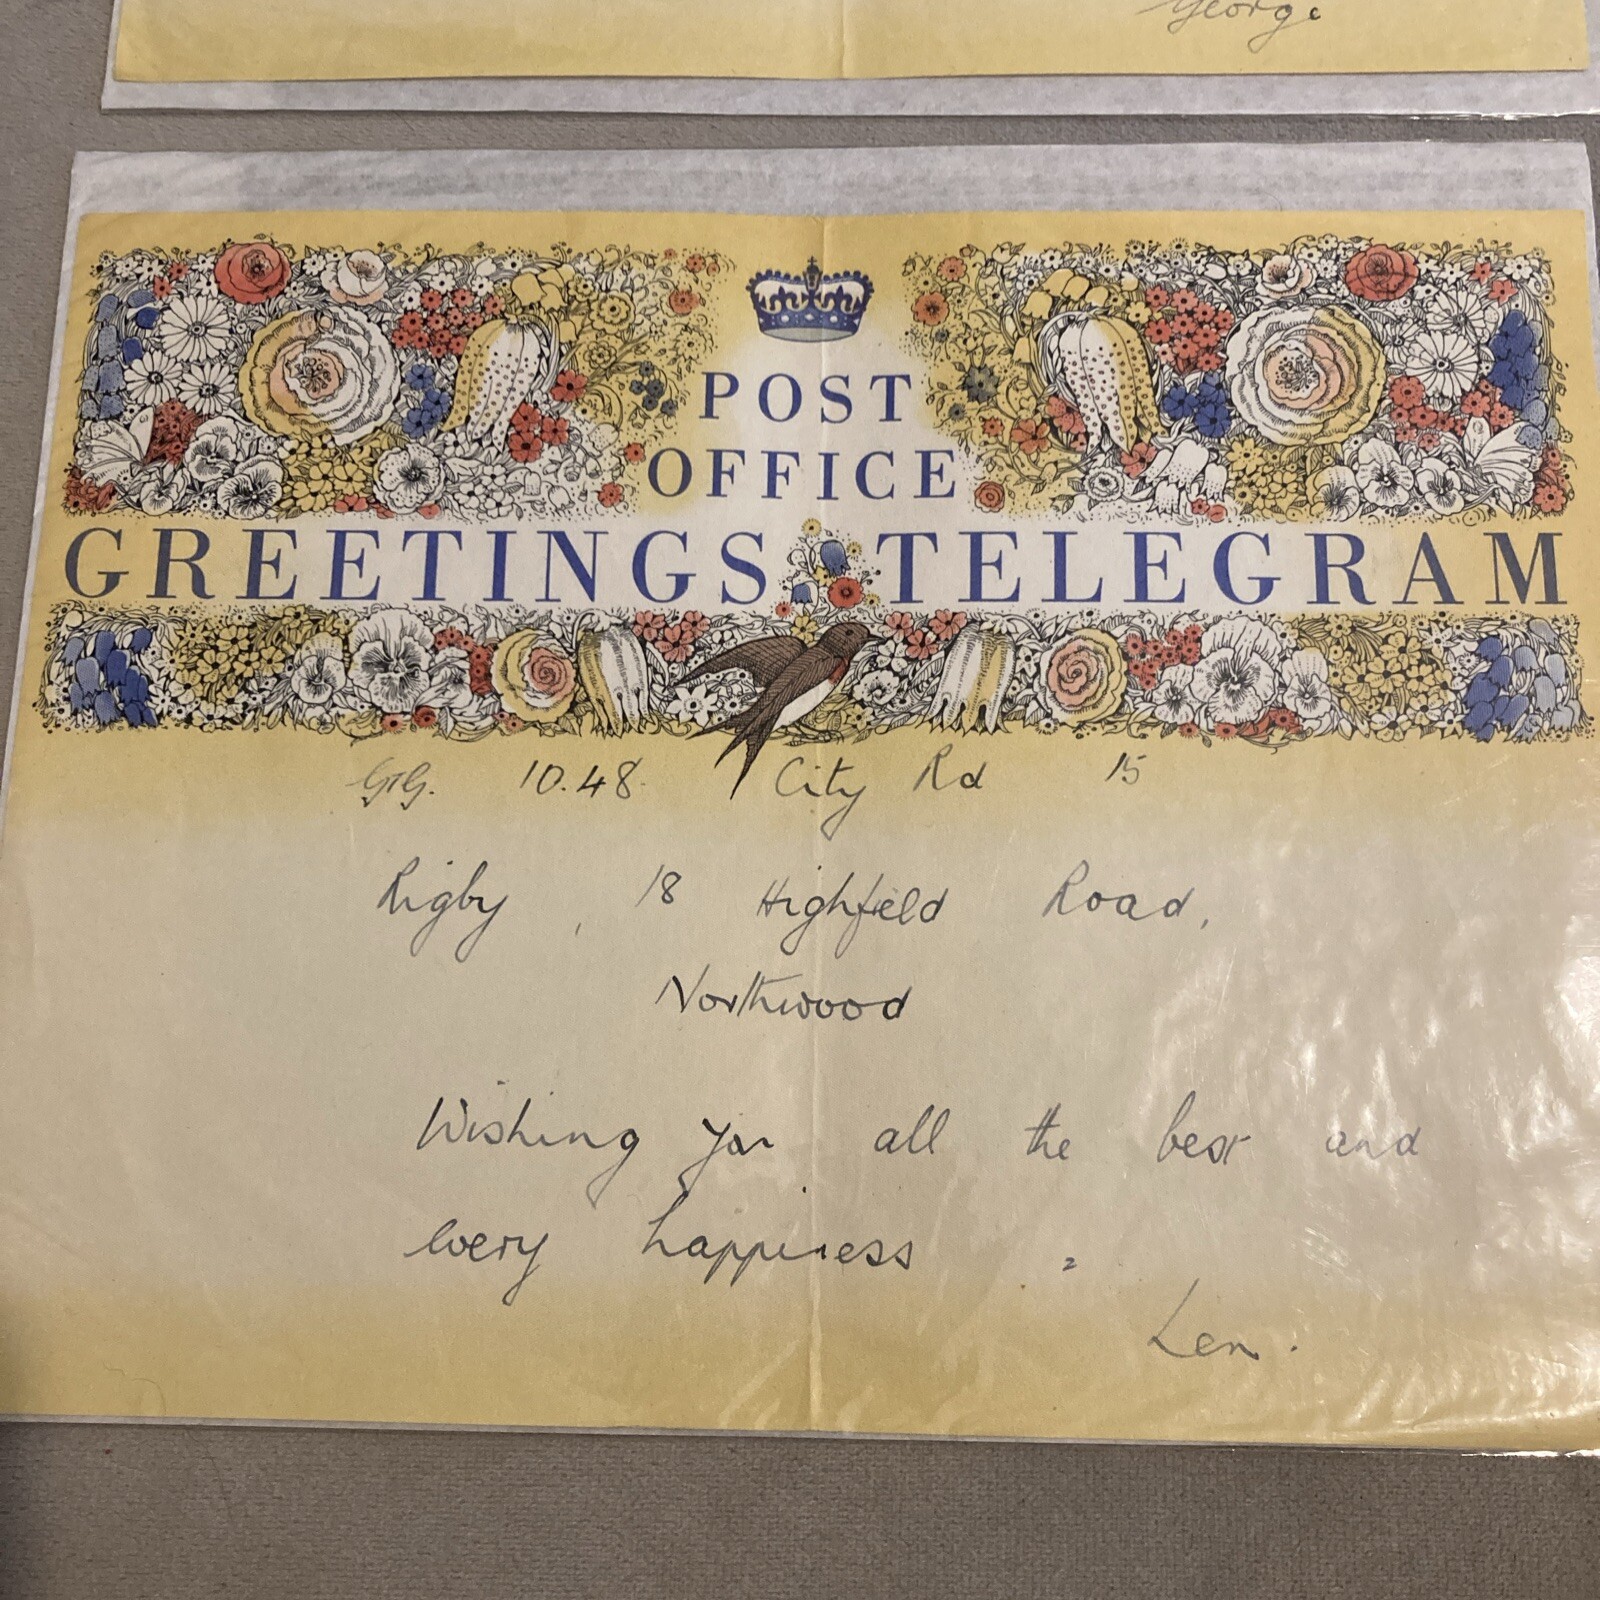 George
POST
OFFICE
GREETINGS TELEGRAM
GTG. 10.48. City Rd 15
Rigby, 18 Highfield Road,
Northwood
Wishing you all the best and
every happiness
Len.